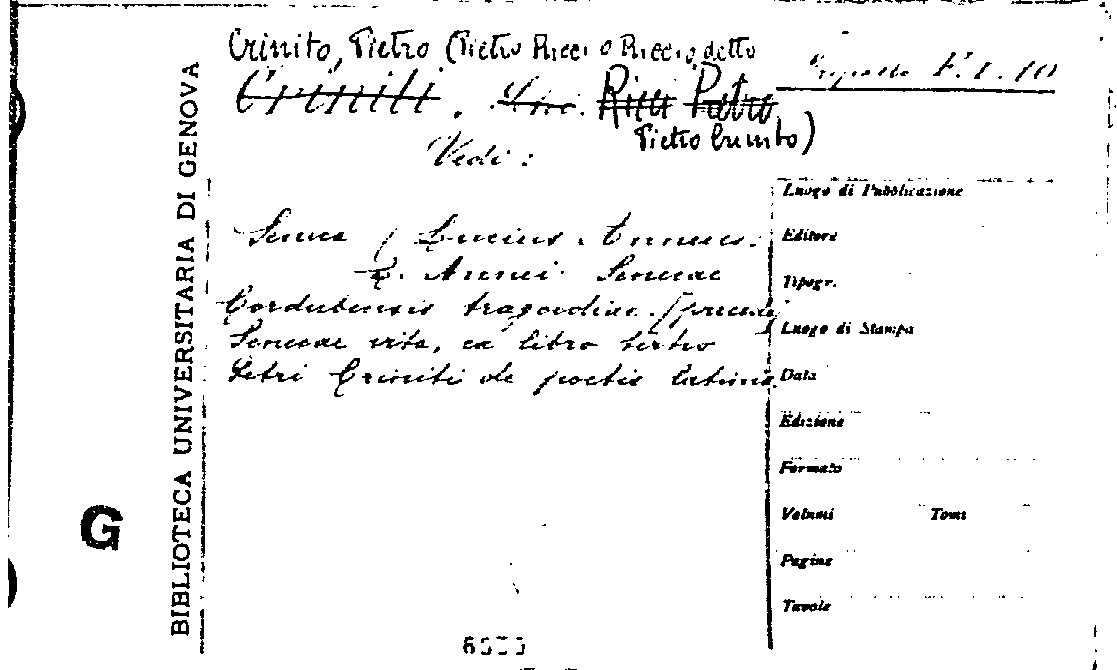 Crinito, Pietro (Pietro Ricci o Riccio, detto
Criniti. Sive. Ricci Pietro
Pietro Crinito)
F.I.10
Vedi:
Seneca (Lucius Annaeus.
L. Annei Senecae
Cordubensis tragoediae.
Senecae vita, ex libro tertio
Petri Criniti de poetis latinis.
BIBLIOTECA UNIVERSITARIA DI GENOVA
G
Luogo di Pubblicazione
Editore
Tipogr.
Luogo di Stampa
Data
Edizione
Formato
Volumi Tomi
Pagine
Tavole